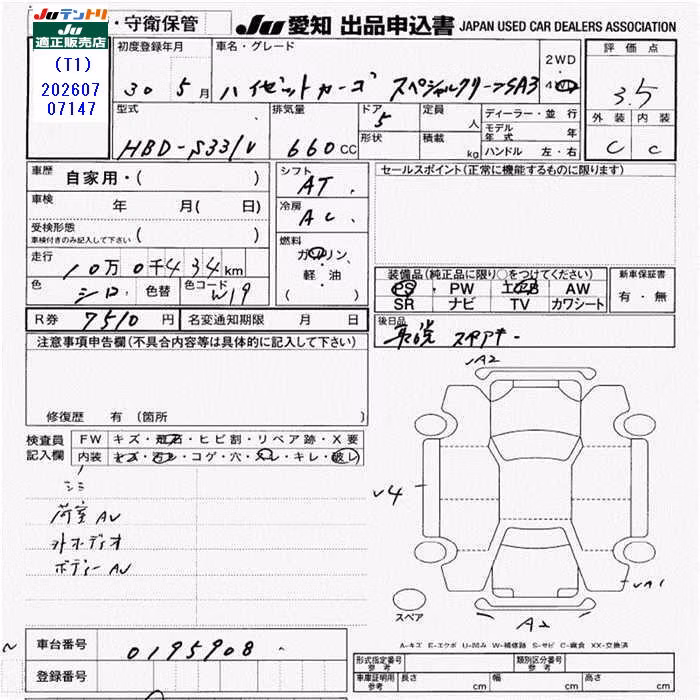 Juテントリ
Ju
適正販売店
(T1)
202607
07147
・守衛保管
Ju 愛知 出品申込書 JAPAN USED CAR DEALERS ASSOCIATION
初度登録年月 車名・グレード 2WD 評価点
30 5月 ハイゼットカーゴ スペシャルクリーンSA3 3.5
外装 内装
C C
型式 排気量 ドア 定員 ディーラー・並行
HBD-S331V 660CC 5 人 モデル年式 年
形状 積載 kg ハンドル 左・右
車歴 自家用・( ) シフト AT セールスポイント(正常に機能するものに限ります)
車検 年 月( 日) 冷房 AC
受検形態
車検付きのみ記入して下さい ( ) 燃料 ガソリン
走行 10万0千434km 軽・油
( )
装備品(純正品に限り○をつけてください) 新車保証書
PS PW エアB AW 有・無
SR ナビ TV カワシート
色 シロ 色替 色コード W19
R券 7510円 名変通知期限 月 日
後日品 取説 スペアキー
注意事項申告欄(不具合内容等は具体的に記入して下さい)
修復歴 有(箇所 )
A2
検査員 FW キズ・飛石・ヒビ割・リペア跡・X要
記入欄 内装 キズ・汚レ・コゲ・穴・スレ・キレ・破レ
シミ
荷室AU
オーディオ
ボディーAU
U4
UA1
スペア
A2
A-キズ E-エクボ U-凹み W-補修跡 S-サビ C-腐食 XX-交換済
車台番号 0195908
登録番号
形式指定番号 参考 類別区分番号 参考
車庫証明用 参考 長さ cm 幅 cm 高さ cm